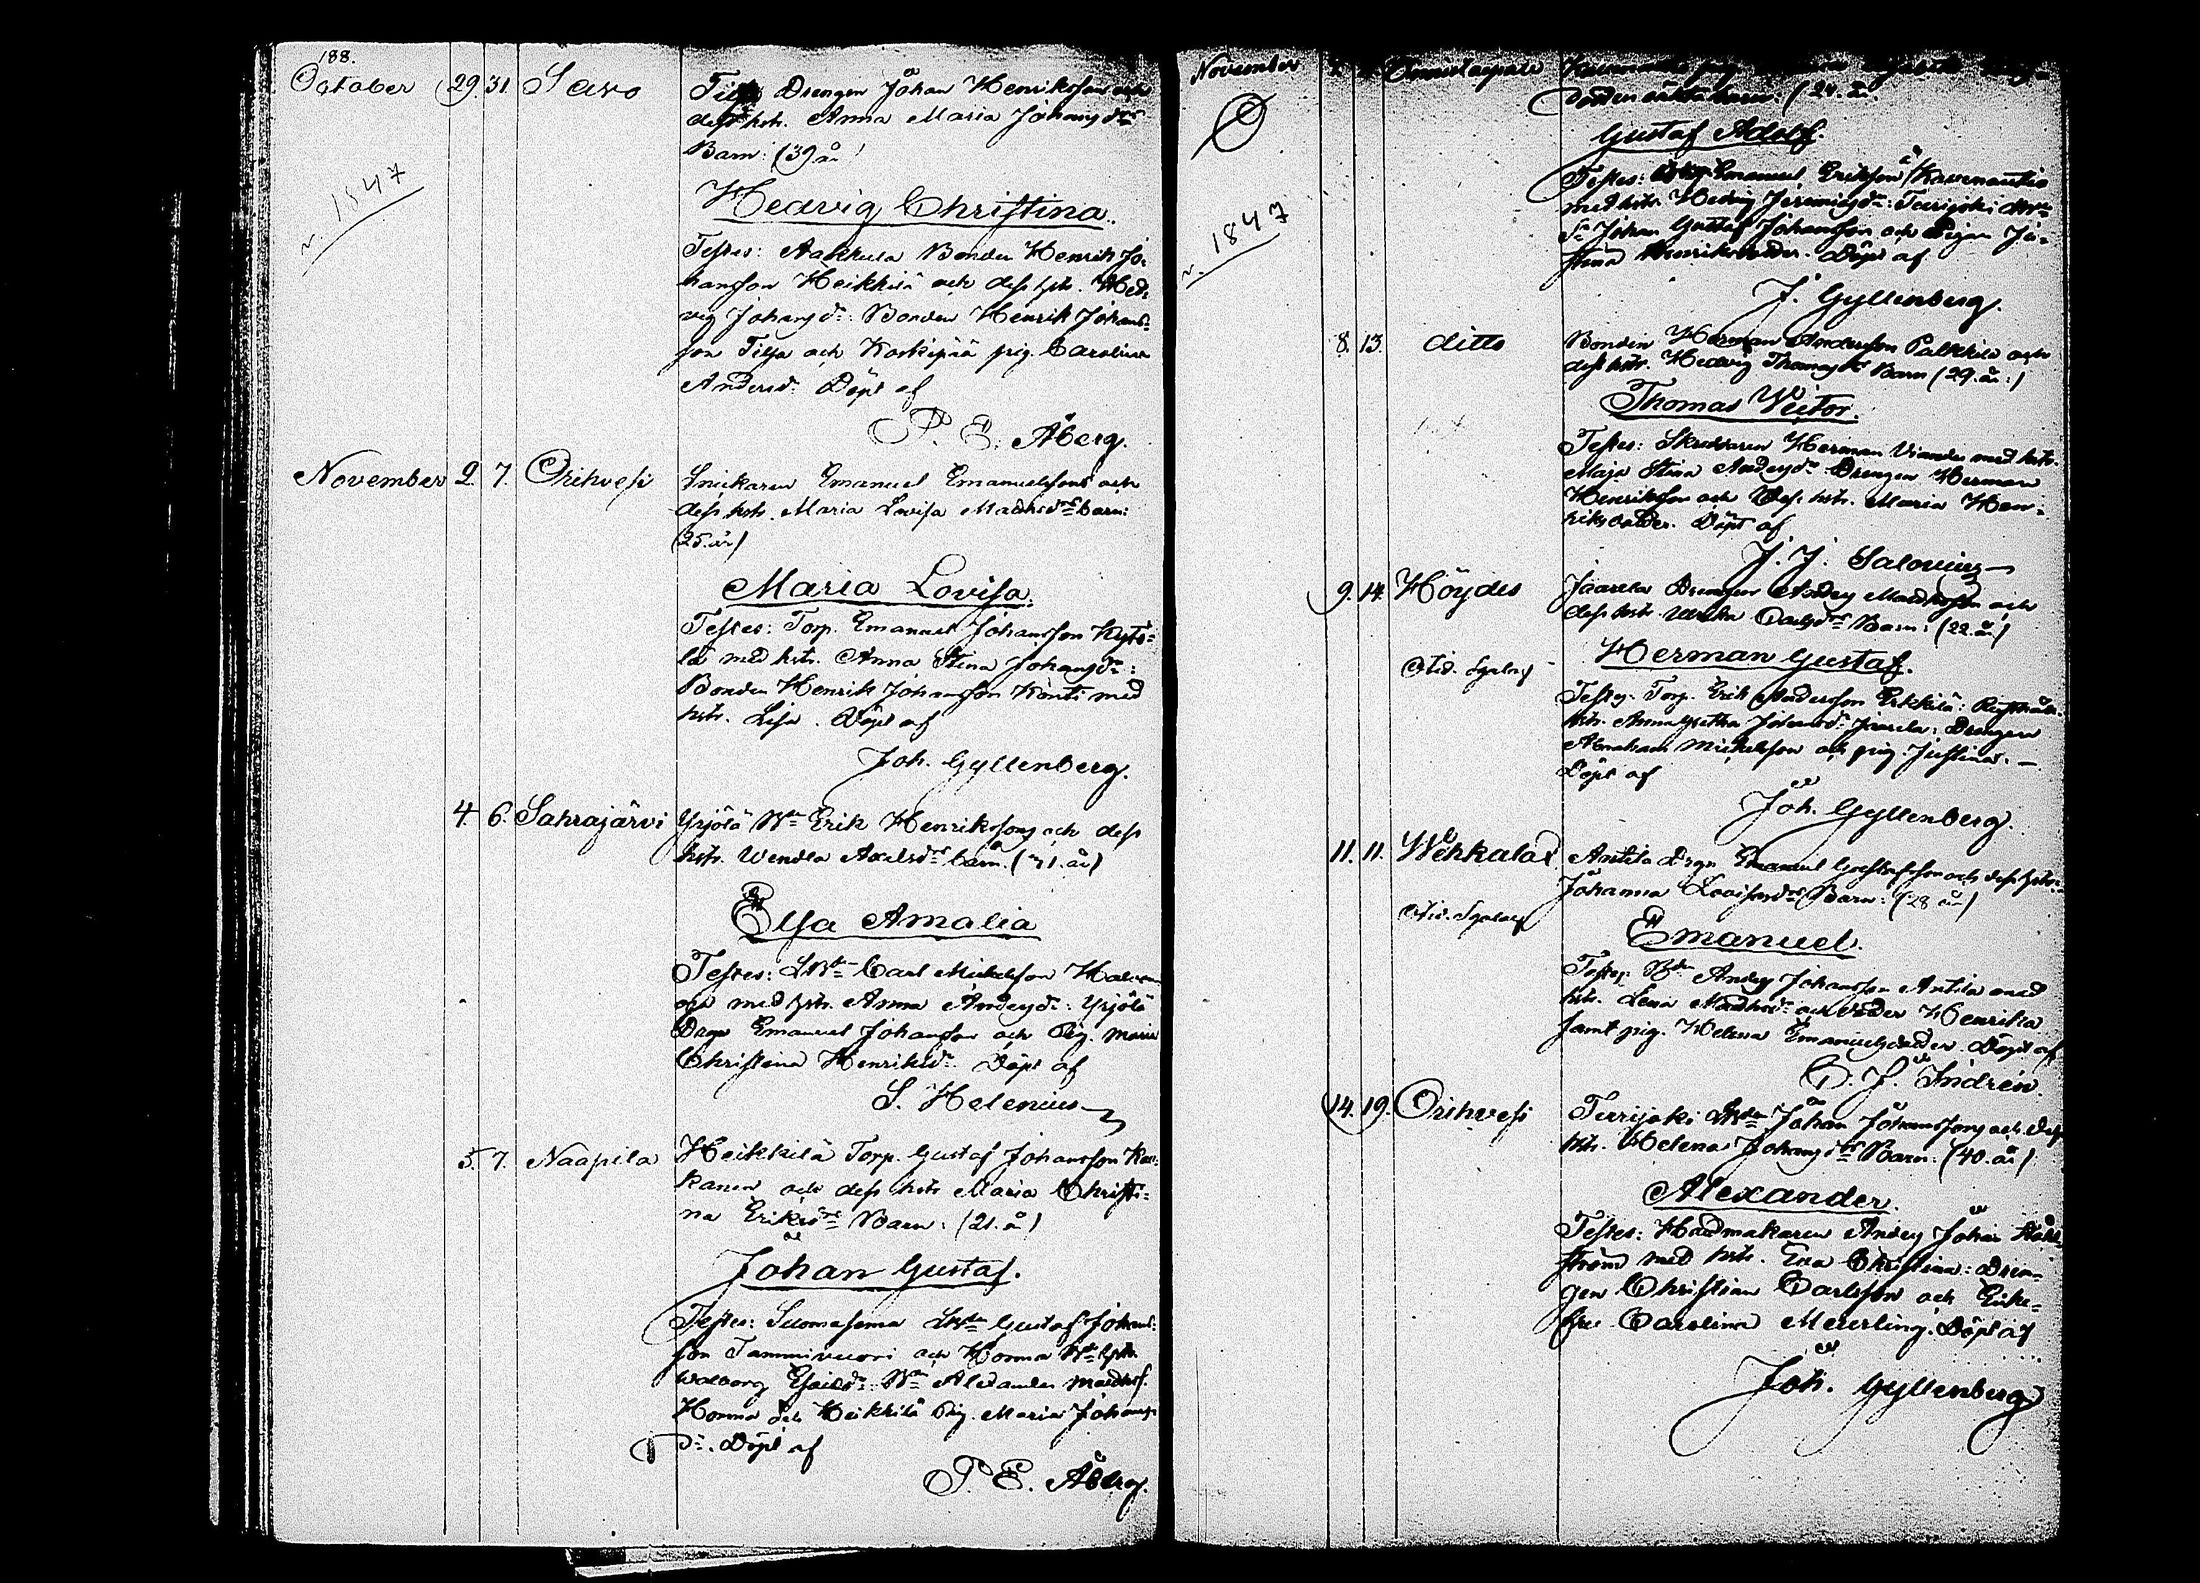 188.
October 29. 31. Savo Drengen Johan Henriksson och
dess hstr. Anna Maria Johansdrs
Barn: (39 år)
1847
Hedvig Christina.
Testes: Aakkula Bonden Henrik Jo-
hansson Heikkilä och dess hstr. Hed-
vig Johansdr. Bonden Henrik Johans-
son Tilsa och Koskipää pig. Carolina
Andersdr. Döpt af
P. E. Åberg.
November 2. 7. Orihvesi Snickaren Emanuel Emanuelssons och
dess hstr. Maria Lovisa Mathsdrs barn:
(25. år)
Maria Lovisa.
Testes: Torp. Emanuel Johansson Kytö-
lä med hstr. Anna Stina Johansdr:
Bonden Henrik Johansson Kontti med
hstr. Lisa. Döpt af
Joh. Gyllenberg.
4. 6. Sahrajärvi Yrjölä Bn Erik Henrikssons och dess
hstr. Wendla Axelsdrs barn. (41. år)
Elsa Amalia
Testes: Carl Mickelsson
med hstr. Anna Andersdr: Yrjölä
Drgn Emanuel Johansson och Pig. Maria
Christina Henriksdr. Döpt af
S. Helenius
5. 7. Naapila Heikkilä Torp. Gustaf Johansson
kanen och dess hstr Maria Christi-
na Eriksdrs Barn: (21. år)
Johan Gustaf.
Testes: Suomasema Gustaf Johans-
son Tammivuori och Horma Bn hstr
Walborg Esaiedr: Bn Alexander Mathss.
Horma och Heikkilä Pig. Maria Johans-
dr. Döpt af
P. E. Åberg.
November
(24. å.
1847
Gustaf Adolf.
Testes: Emanuel Eriksson Kavenautio
med hstr. Hedvig Jeremiasdr: Turrijoki
Johan Gustaf Johansson och Pigan Ju-
stina Henriksdotter. Döpt af
J. Gyllenberg.
8. 13. ditto Bonden Herman Andersson Palkkila och
dess hstr. Hedvig Thomasdrs Barn (29. år:)
Thomas Victor.
Testes: Skraddaren Herman Viander med hstr.
Maja Stina Andersdr. Drengen Herman
Henriksson och dess hstr. Maria Hen-
riksdotter. Döpt af
J. J. Salovius
9. 14. Höydes Jaarila Drengen Anders Mathsson och
dess hstr. Ulrika Carlsdrs Barn: (22. år)
Herman Gustaf.
Testes: Torp. Erik Andersson Erkkilä:
hstr. Anna Gretha Johansd. Jaarila: Drengen
Abraham Mickelsson och pig. Justina.
Döpt af
Joh. Gyllenberg.
11. 11. Wehkalax Anttila Drgn Emanuel Gustafsson och dess hstr.
Johanna Lovisædrs Barn: (28 år)
Emanuel.
Testes: Anders Johansson Anttila med
hstr. Lena Mathsdr. och Henrika
samt pig. Helena Emanuelsdotter. Döpt af
C. J. Indrén.
14. 19. Orihvesi Turrijoki Johan Johanssons och dess
hstr. Helena Johansdrs Barn: (40. år)
Alexander.
Testes: Handmakaren Anders Johan
ström med hstr. Eva Christina: Dren-
gen Christian Carlsson och Enke-
fru Carolina Meurling. Döpt af
Joh. Gyllenberg